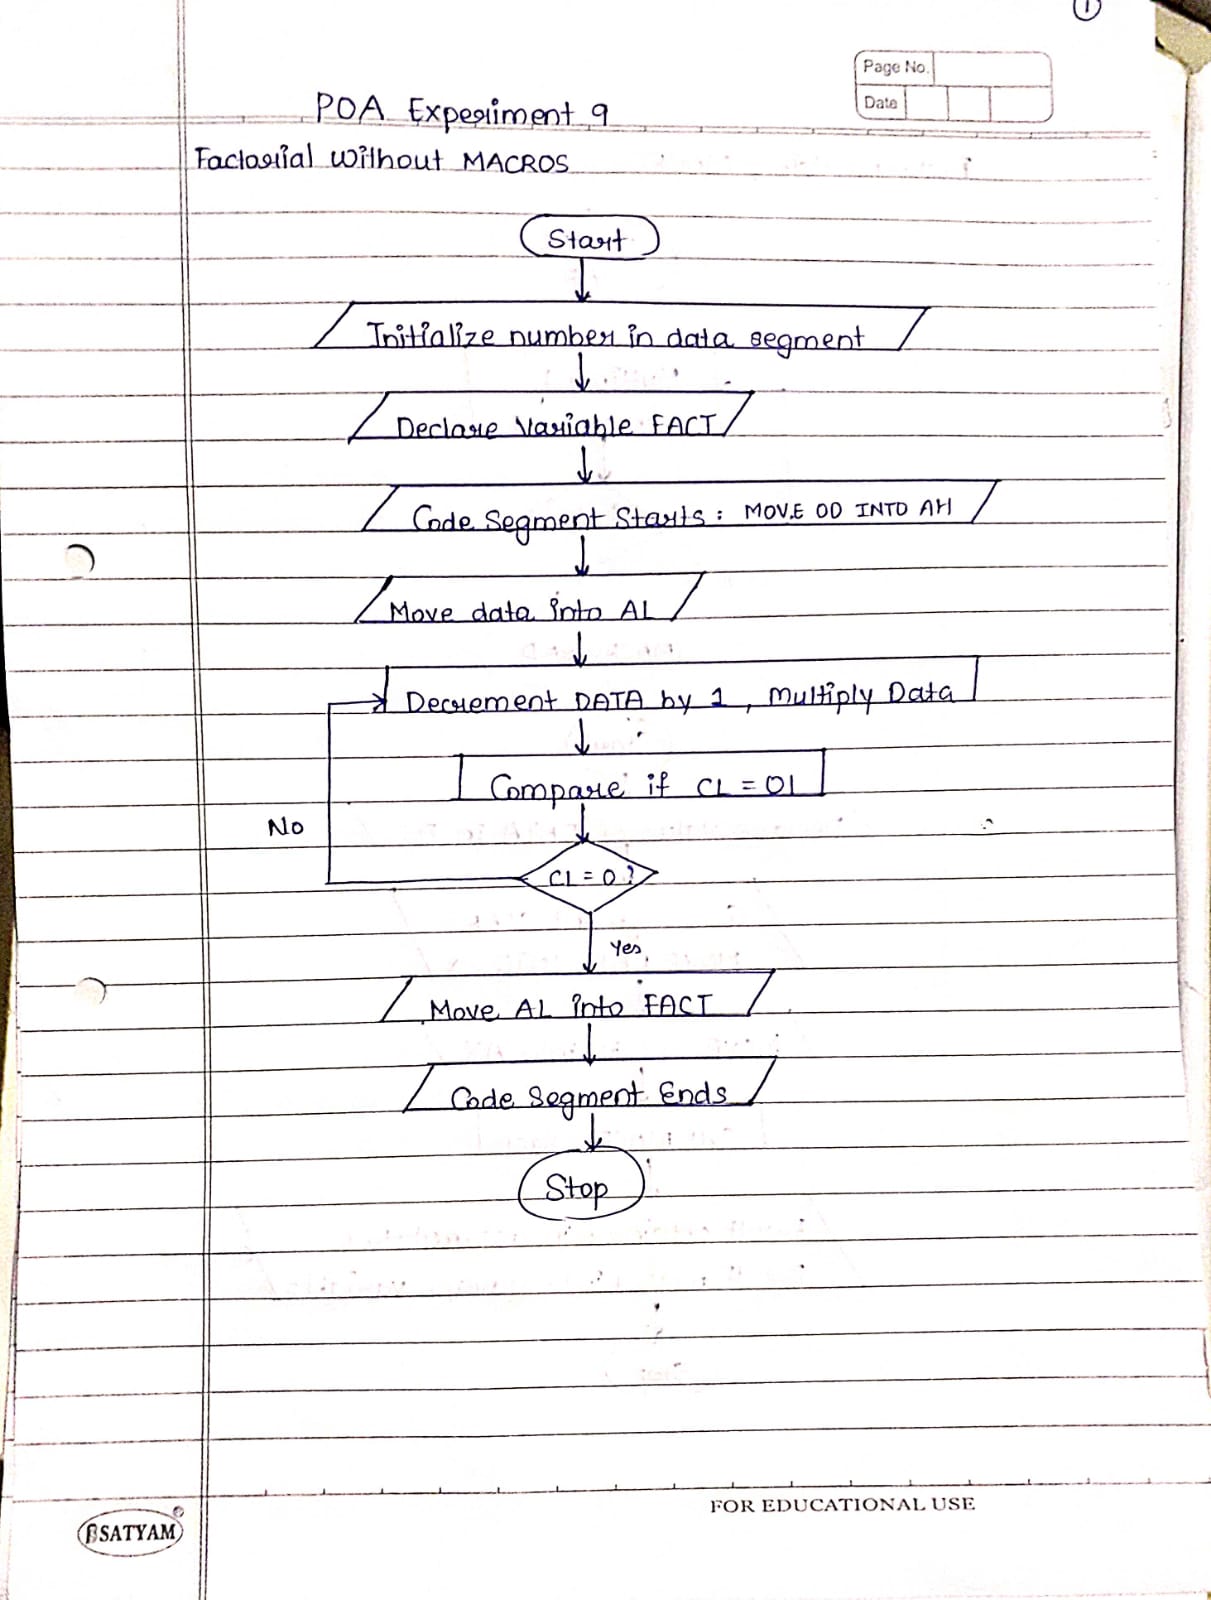 1
Page No.
Date
POA Experiment 9
Factorial without MACROS
Start
Initialize number in data segment
Declare Variable FACT
Code Segment Starts: MOVE 00 INTO AH
Move data into AL
Decrement DATA by 1, Multiply Data
Compare if CL = 01
No
CL = 0?
Yes
Move AL into FACT
Code Segment Ends
Stop
FOR EDUCATIONAL USE
SATYAM